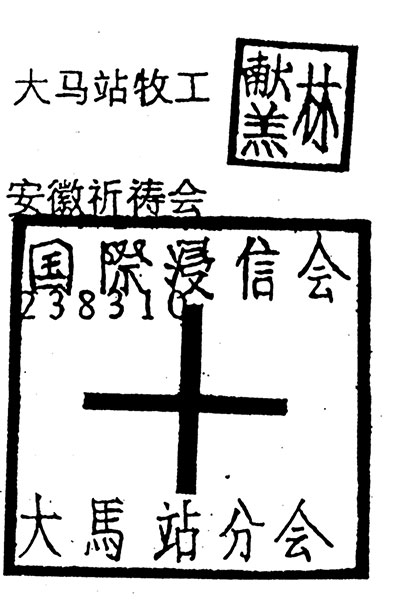 大马站牧工
林献羔
安徽祈祷会
国際浸信会
238310
大馬站分会